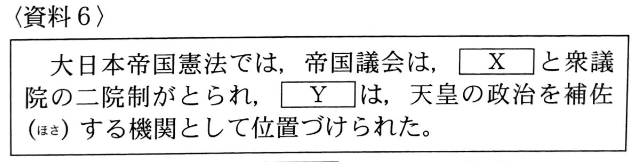 〈資料６〉
大日本帝国憲法では，帝国議会は， X と衆議
院の二院制がとられ， Y は，天皇の政治を補佐
(ほさ)する機関として位置づけられた。